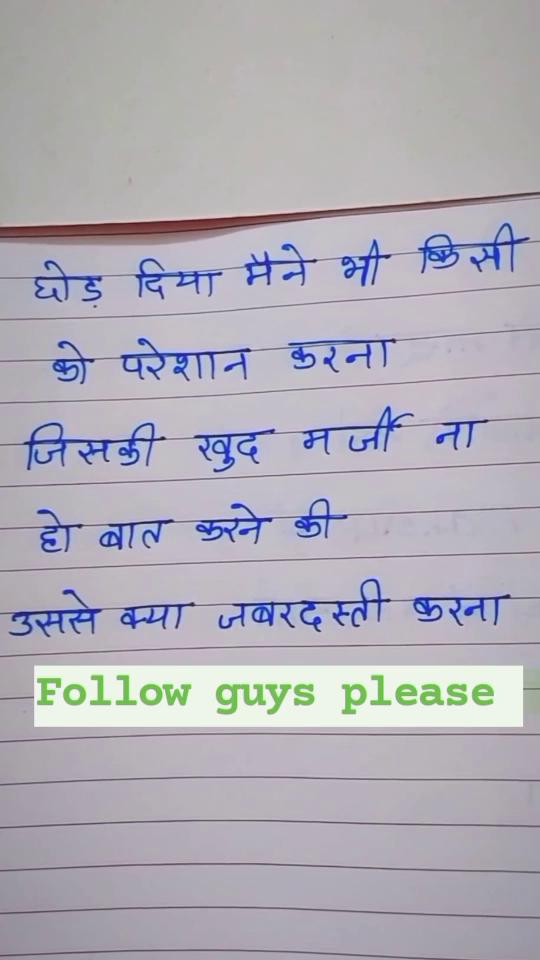 छोड़ दिया मैने भी किसी
को परेशान करना
जिसकी खुद मर्जी ना
हो बात करने की
उससे क्या जबरदस्ती करना
Follow guys please